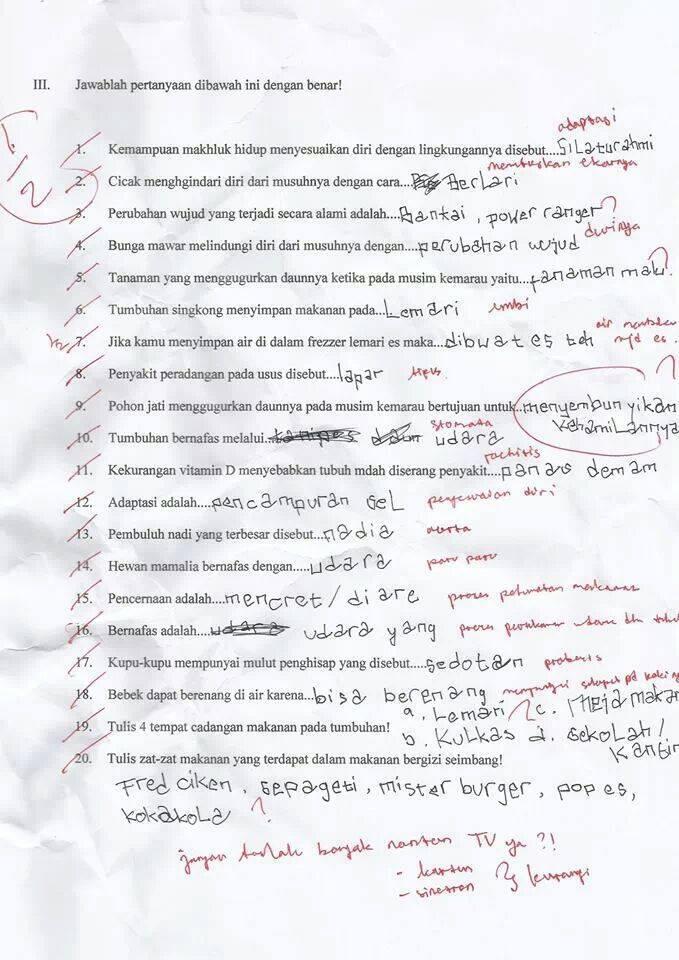 III. Jawablah pertanyaan dibawah ini dengan benar!
adaptasi
1. Kemampuan makhluk hidup menyesuaikan diri dengan lingkungannya disebut....Silaturahmi
memutuskan ekornya
2. Cicak menghgindari diri dari musuhnya dengan cara... Berlari
3. Perubahan wujud yang terjadi secara alami adalah....Bantai, power ranger ?
durinya
4. Bunga mawar melindungi diri dari musuhnya dengan....perubahan wujud
5. Tanaman yang menggugurkan daunnya ketika pada musim kemarau yaitu....tanaman mati. ?
6. Tumbuhan singkong menyimpan makanan pada....Lemari umbi
air
mjd es.
½ 7. Jika kamu menyimpan air di dalam frezzer lemari es maka...dibwat es teh
8. Penyakit peradangan pada usus disebut....lapar tipus.
9. Pohon jati menggugurkan daunnya pada musim kemarau bertujuan untuk..menyembunyikan ?
kehamilannya
stomata
10. Tumbuhan bernafas melalui.. udara
rachitis
11. Kekurangan vitamin D menyebabkan tubuh mdah diserang penyakit....panas demam
12. Adaptasi adalah....pencampuran sel penyesuaian diri
13. Pembuluh nadi yang terbesar disebut...nadia aorta
14. Hewan mamalia bernafas dengan.....udara paru paru
15. Pencernaan adalah....mencret/diare proses pelumatan makanan
16. Bernafas adalah.... udara yang proses pertukaran udara dlm tubuh
17. Kupu-kupu mempunyai mulut penghisap yang disebut.....sedotan probosis
18. Bebek dapat berenang di air karena...bisa berenang mempunyai selaput pd kakinya
19. Tulis 4 tempat cadangan makanan pada tumbuhan! a. Lemari ? c. Meja makan
b. Kulkas d. Sekolah/
kantin
20. Tulis zat-zat makanan yang terdapat dalam makanan bergizi seimbang!
Fred ciken, sepageti, mister burger, pop es,
kokakola ?
jangan banyak nonton TV ya ?!
- kartun
- sinetron kurangi